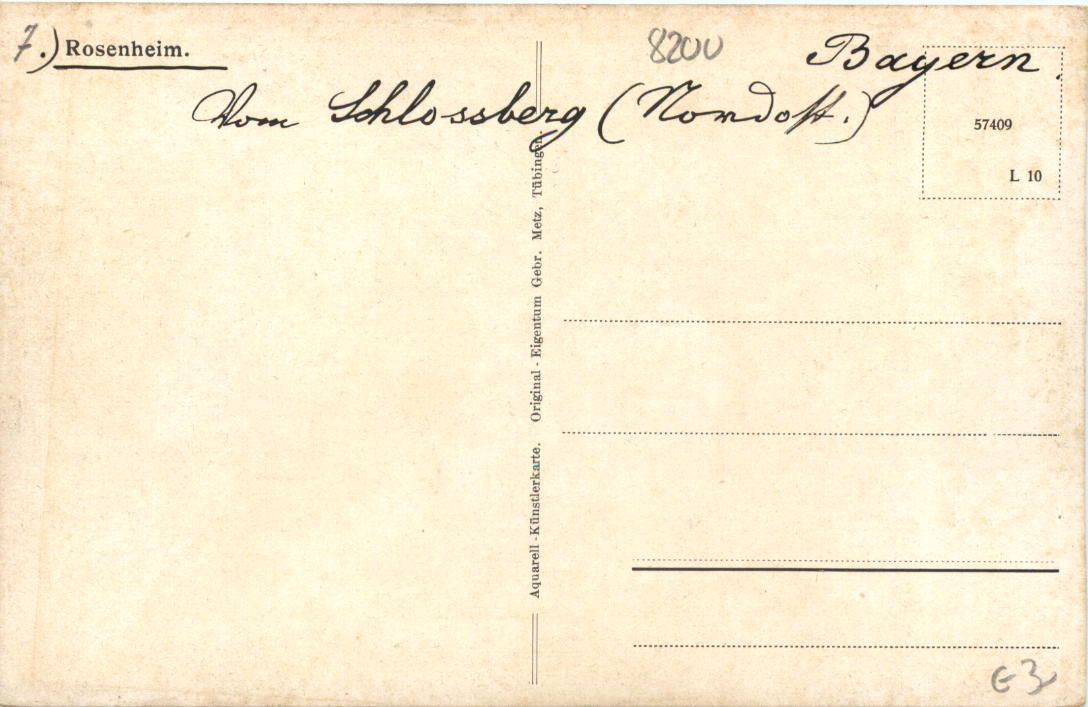 7.) Rosenheim.
8200
Bayern.
Vom Schlossberg (Nordost.)
57409
L 10
Aquarell-Künstlerkarte. Original-Eigentum Gebr. Metz, Tübingen.
€3